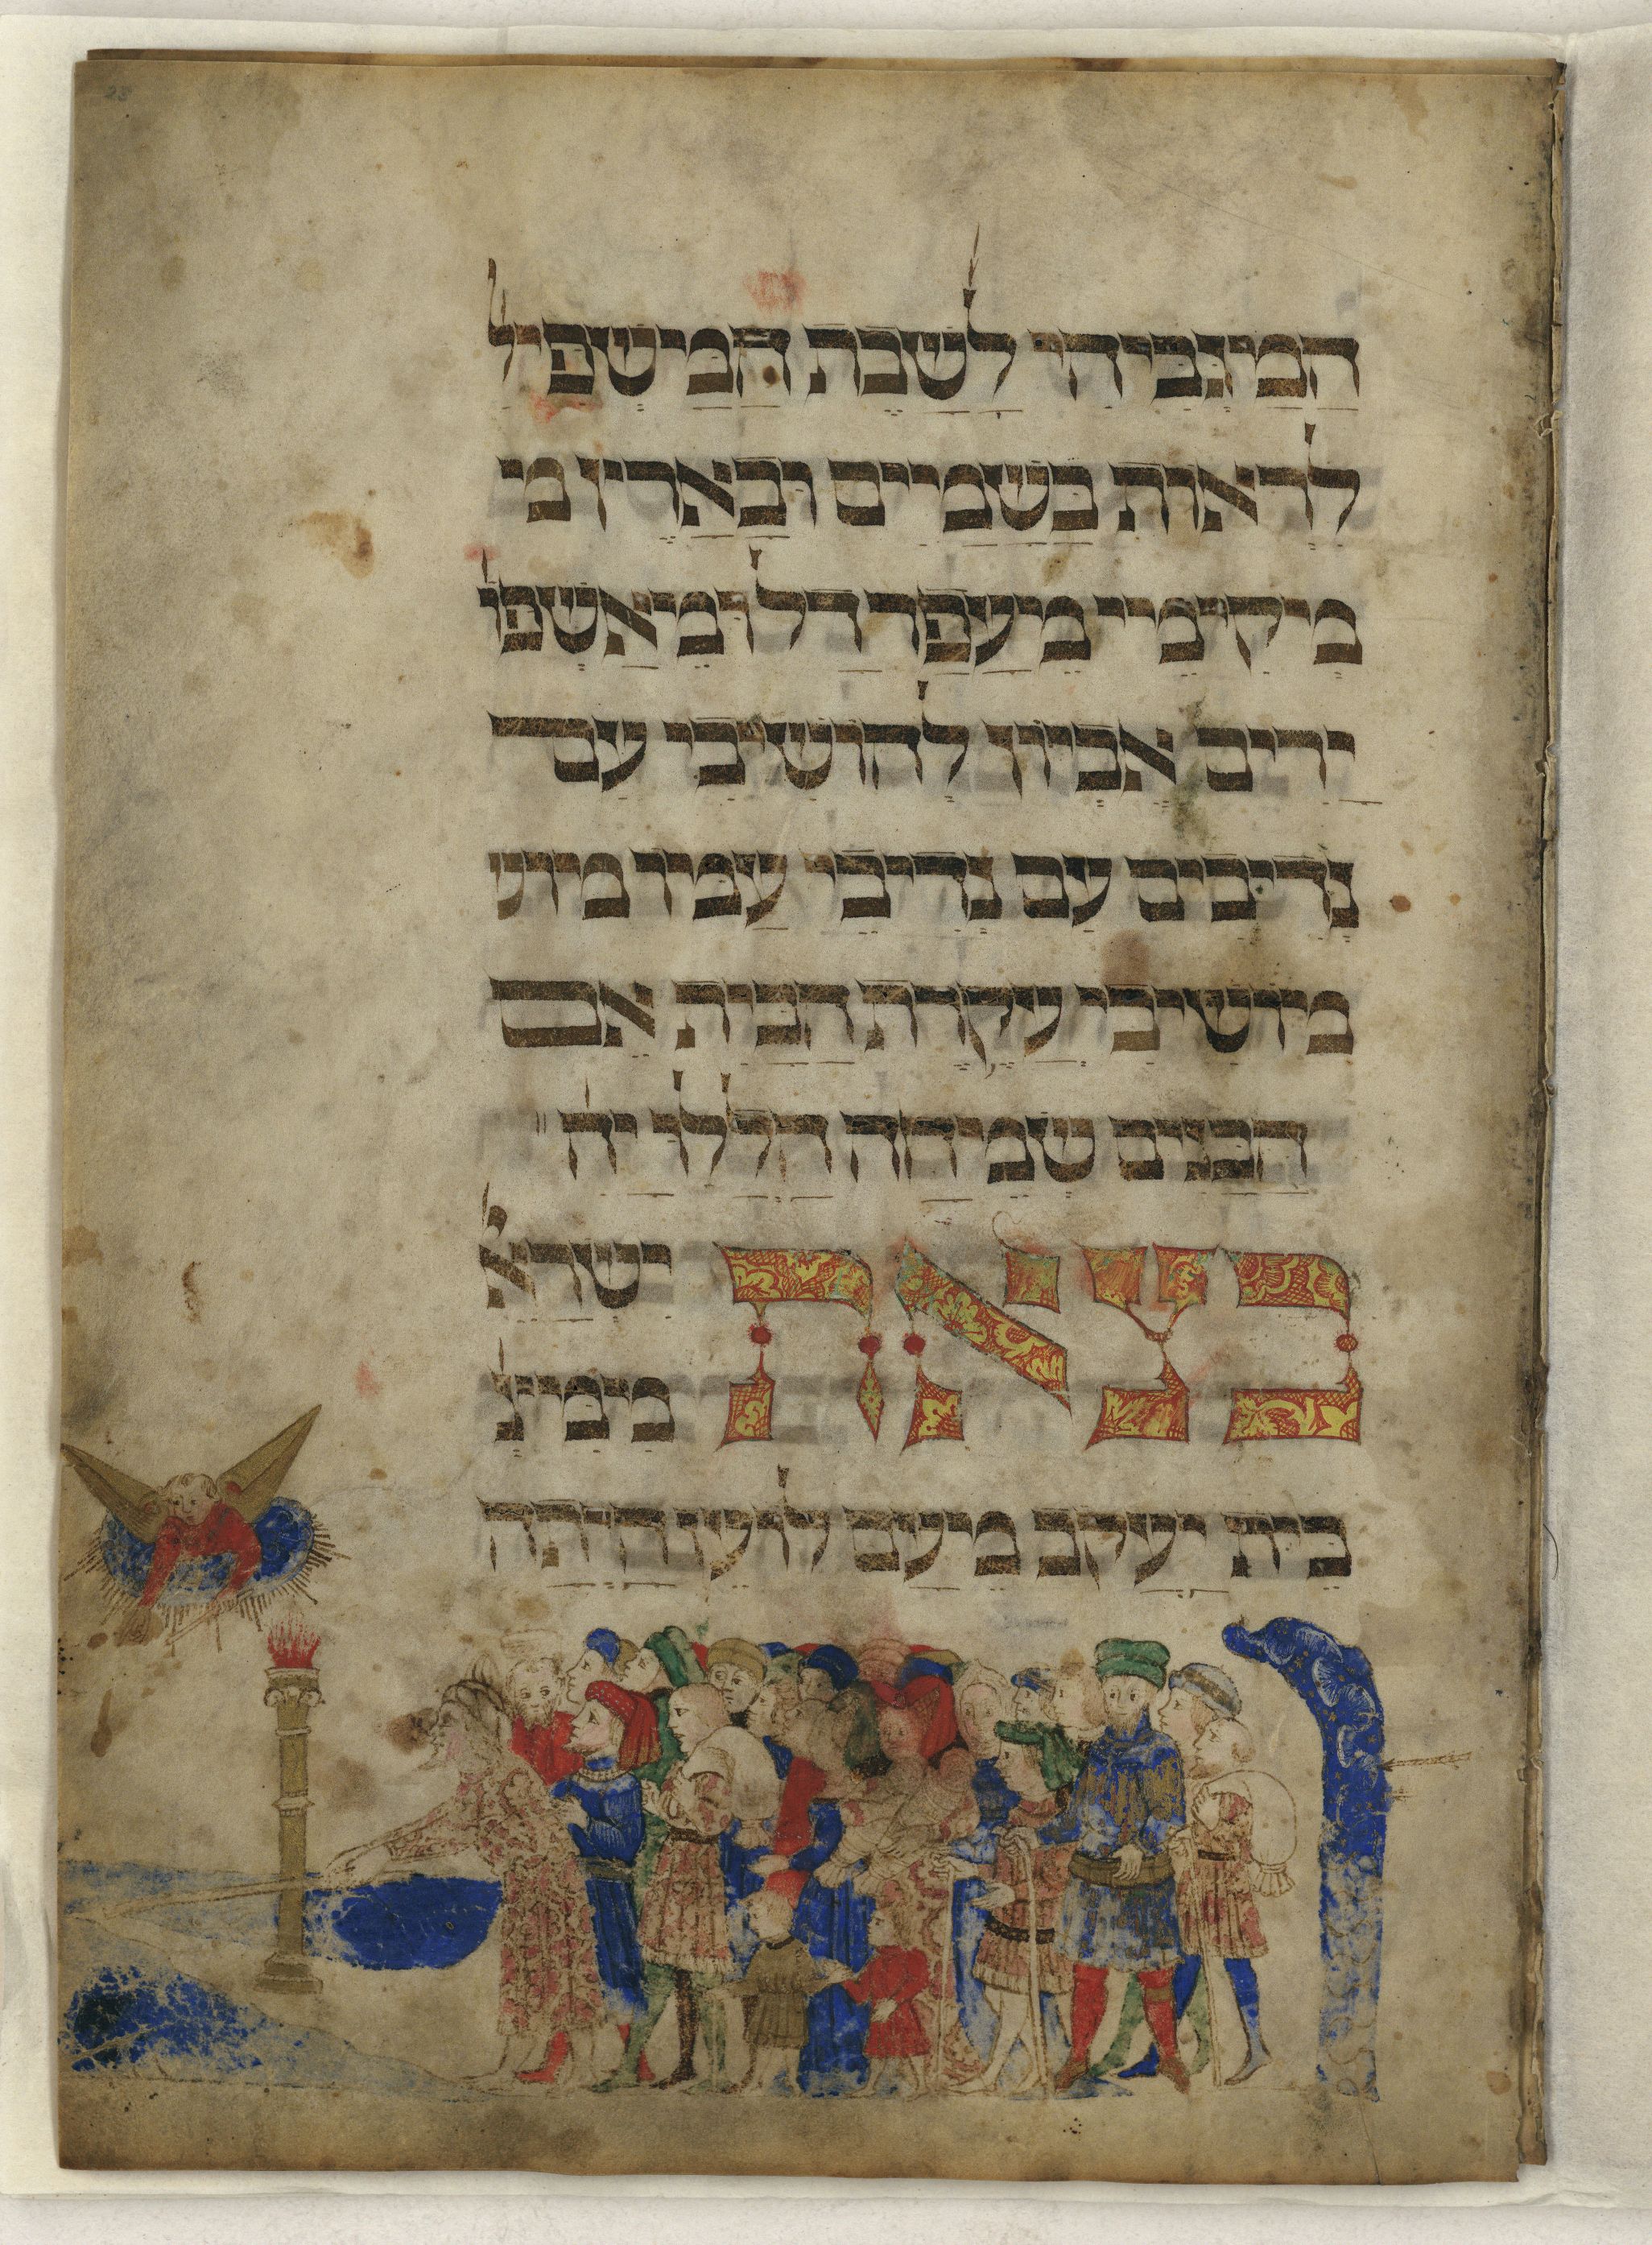 23
המגביהי לשבת המשפיל
לראות בשמים ובארץ מי
מקימי מעפר דל ומאשפו
ירים אביון להושיבי עם
נדיבים עם נדיבי עמו מוש
מושיבי עקרת הבית אם
הבנים שמיחה הללויה
בצאת ישרא
ממיצ
בית יעקב מעם לועז היתה